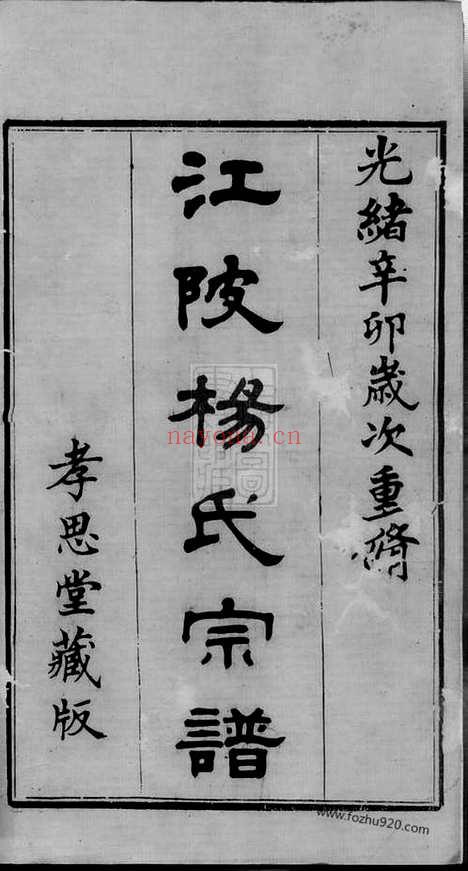 光緒辛卯歲次重脩
江陂楊氏宗譜
孝思堂藏版
nayona.cn
www.fozhu920.com